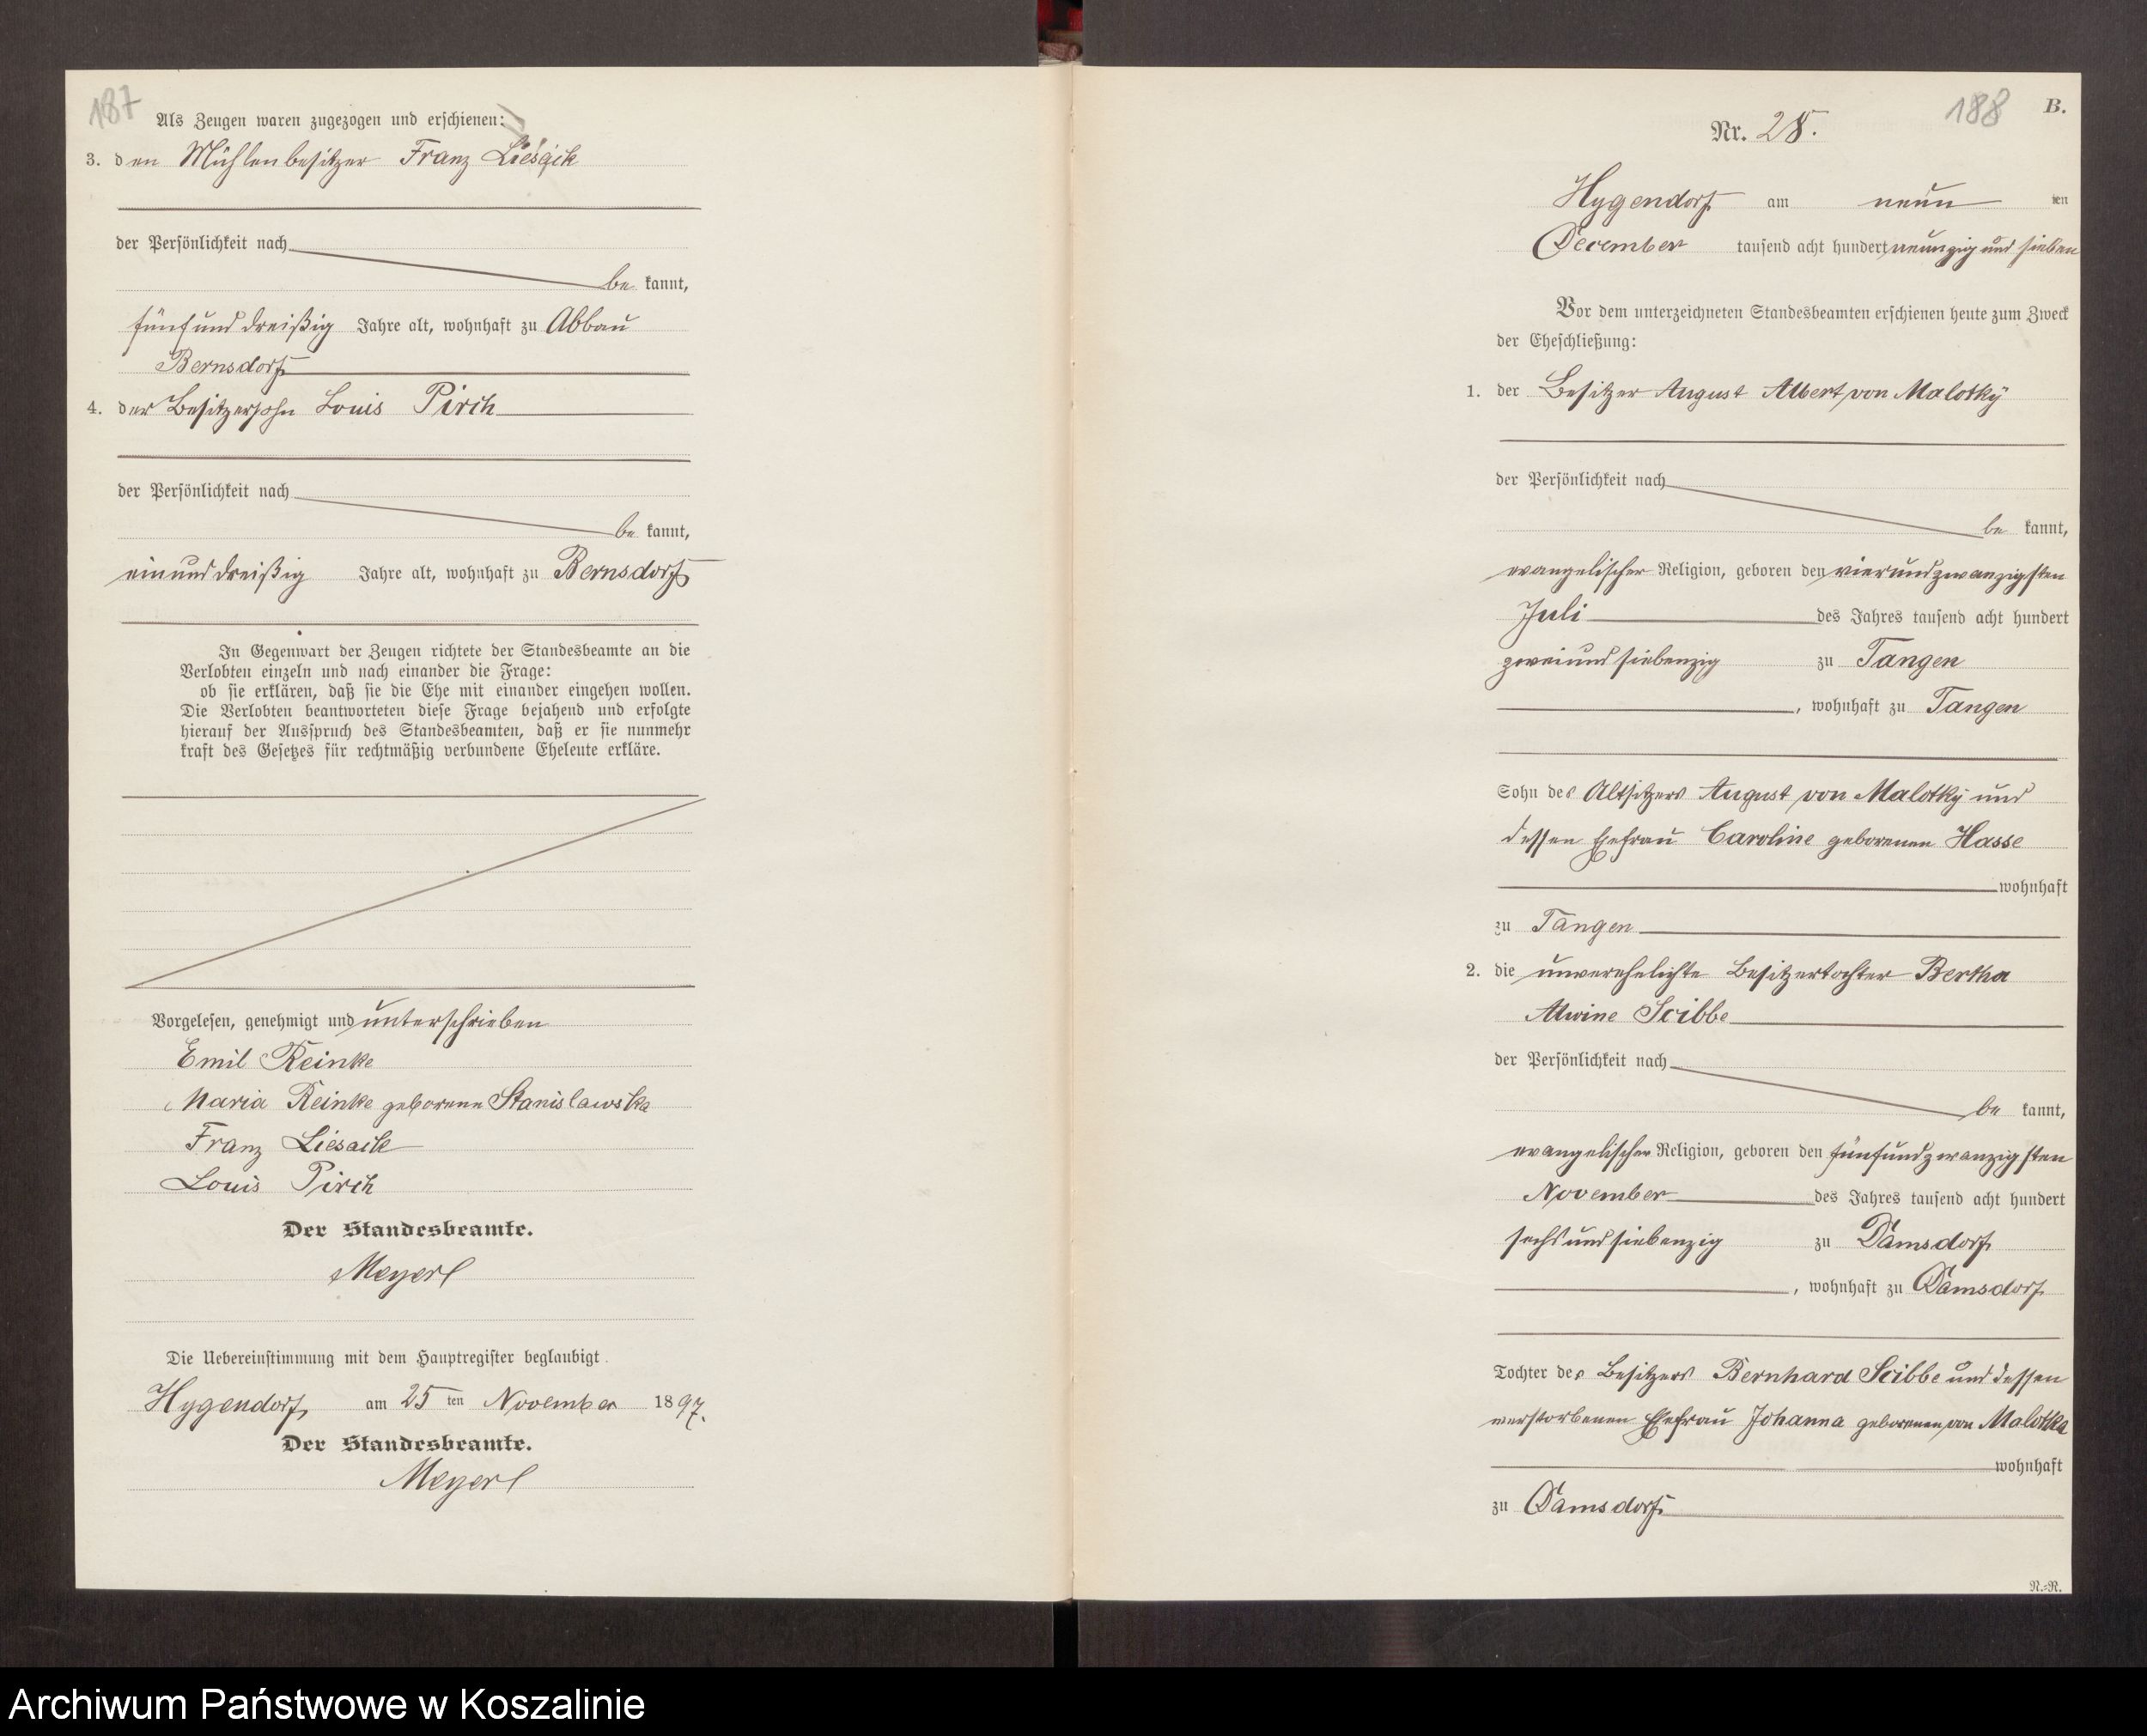 187
Als Zeugen waren zugezogen und erschienen:
3. den Mühlenbesitzer Franz Liesack
der Persönlichkeit nach
be kannt,
fünfunddreißig Jahre alt, wohnhaft zu Abbau
Bernsdorf
4. der Besitzersohn Louis Pirch
der Persönlichkeit nach
be kannt,
einunddreißig Jahre alt, wohnhaft zu Bernsdorf
In Gegenwart der Zeugen richtete der Standesbeamte an die
Verlobten einzeln und nach einander die Frage:
ob sie erklären, daß sie die Ehe mit einander eingehen wollen.
Die Verlobten beantworteten diese Frage bejahend und erfolgte
hierauf der Ausspruch des Standesbeamten, daß er sie nunmehr
kraft des Gesetzes für rechtmäßig verbundene Eheleute erkläre.
Vorgelesen, genehmigt und unterschrieben
Emil Reinke
Maria Reinke geborene Stanislawska
Franz Liesack
Louis Pirch
Der Standesbeamte.
Meyerl
Die Uebereinstimmung mit dem Hauptregister beglaubigt.
Hygendorf, am 25 ten November 1897.
Der Standesbeamte.
Meyerl
188 B.
Nr. 28.
Hygendorf am neun ten
December tausend acht hundert neunzig und sieben
Vor dem unterzeichneten Standesbeamten erschienen heute zum Zweck
der Eheschließung:
1. der Besitzer August Albert von Malotky
der Persönlichkeit nach
be kannt,
evangelischer Religion, geboren den vierundzwanzigsten
Juli des Jahres tausend acht hundert
zweiundsiebenzig zu Tangen
, wohnhaft zu Tangen
Sohn des Altsitzers August von Malotky und
dessen Ehefrau Caroline geborenen Hasse
wohnhaft
zu Tangen
2. die unverehelichte Besitzertochter Bertha
Alwine Scibbe
der Persönlichkeit nach
be kannt,
evangelischer Religion, geboren den fünfundzwanzigsten
November des Jahres tausend acht hundert
sechsundsiebenzig zu Damsdorf
, wohnhaft zu Damsdorf
Tochter des Besitzers Bernhard Scibbe und dessen
verstorbenen Ehefrau Johanna geborenen von Malotka
wohnhaft
zu Damsdorf
N.-R.
Archiwum Państwowe w Koszalinie